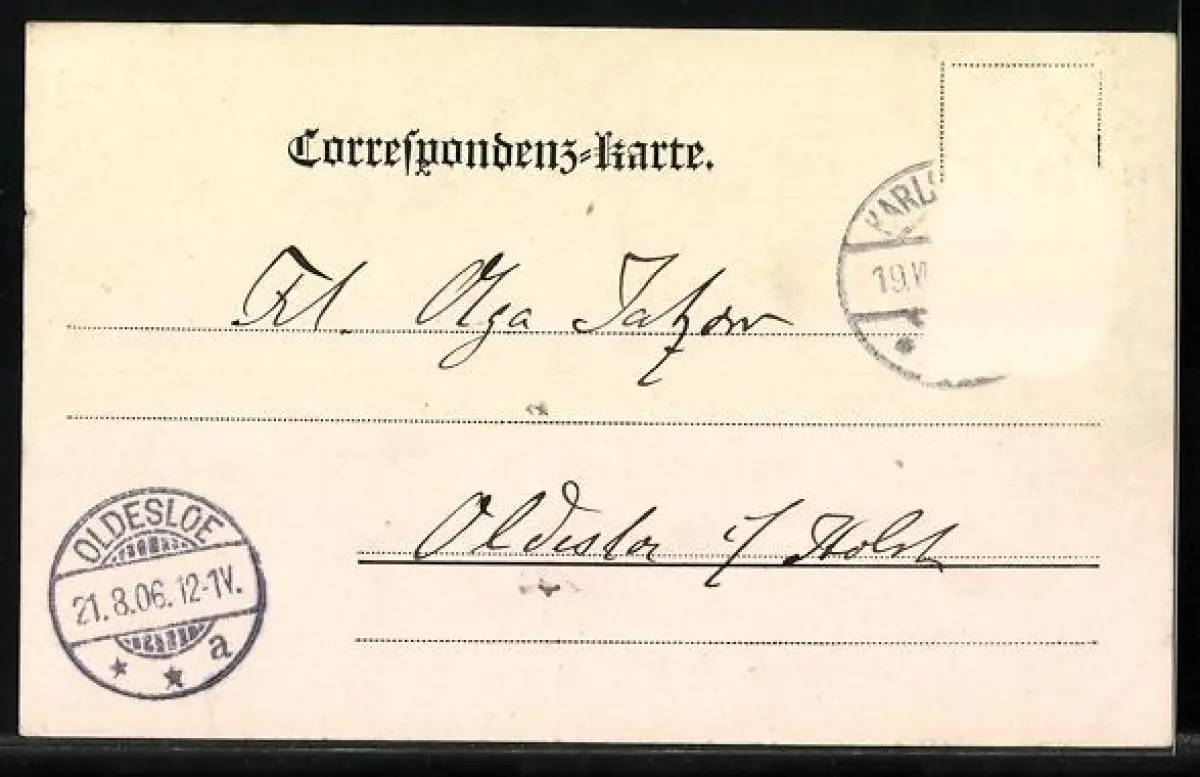 Correspondenz-Karte.
KARLS
19.VI
Frl. Olga Tatzow
Oldesloe i/ Holst
OLDESLOE
21.8.06.12-1V.
* * a